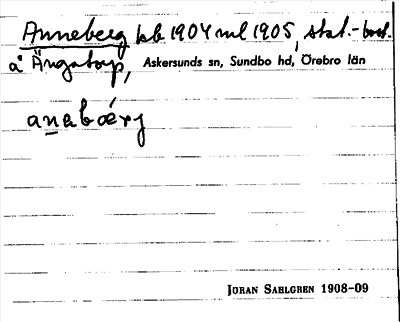 Anneberg hb 1904 ml 1905, stat.-bost.
å Ängatorp, Askersunds sn, Sundbo hd, Örebro län
anabærj
JÖRAN SAHLGREN 1908-09